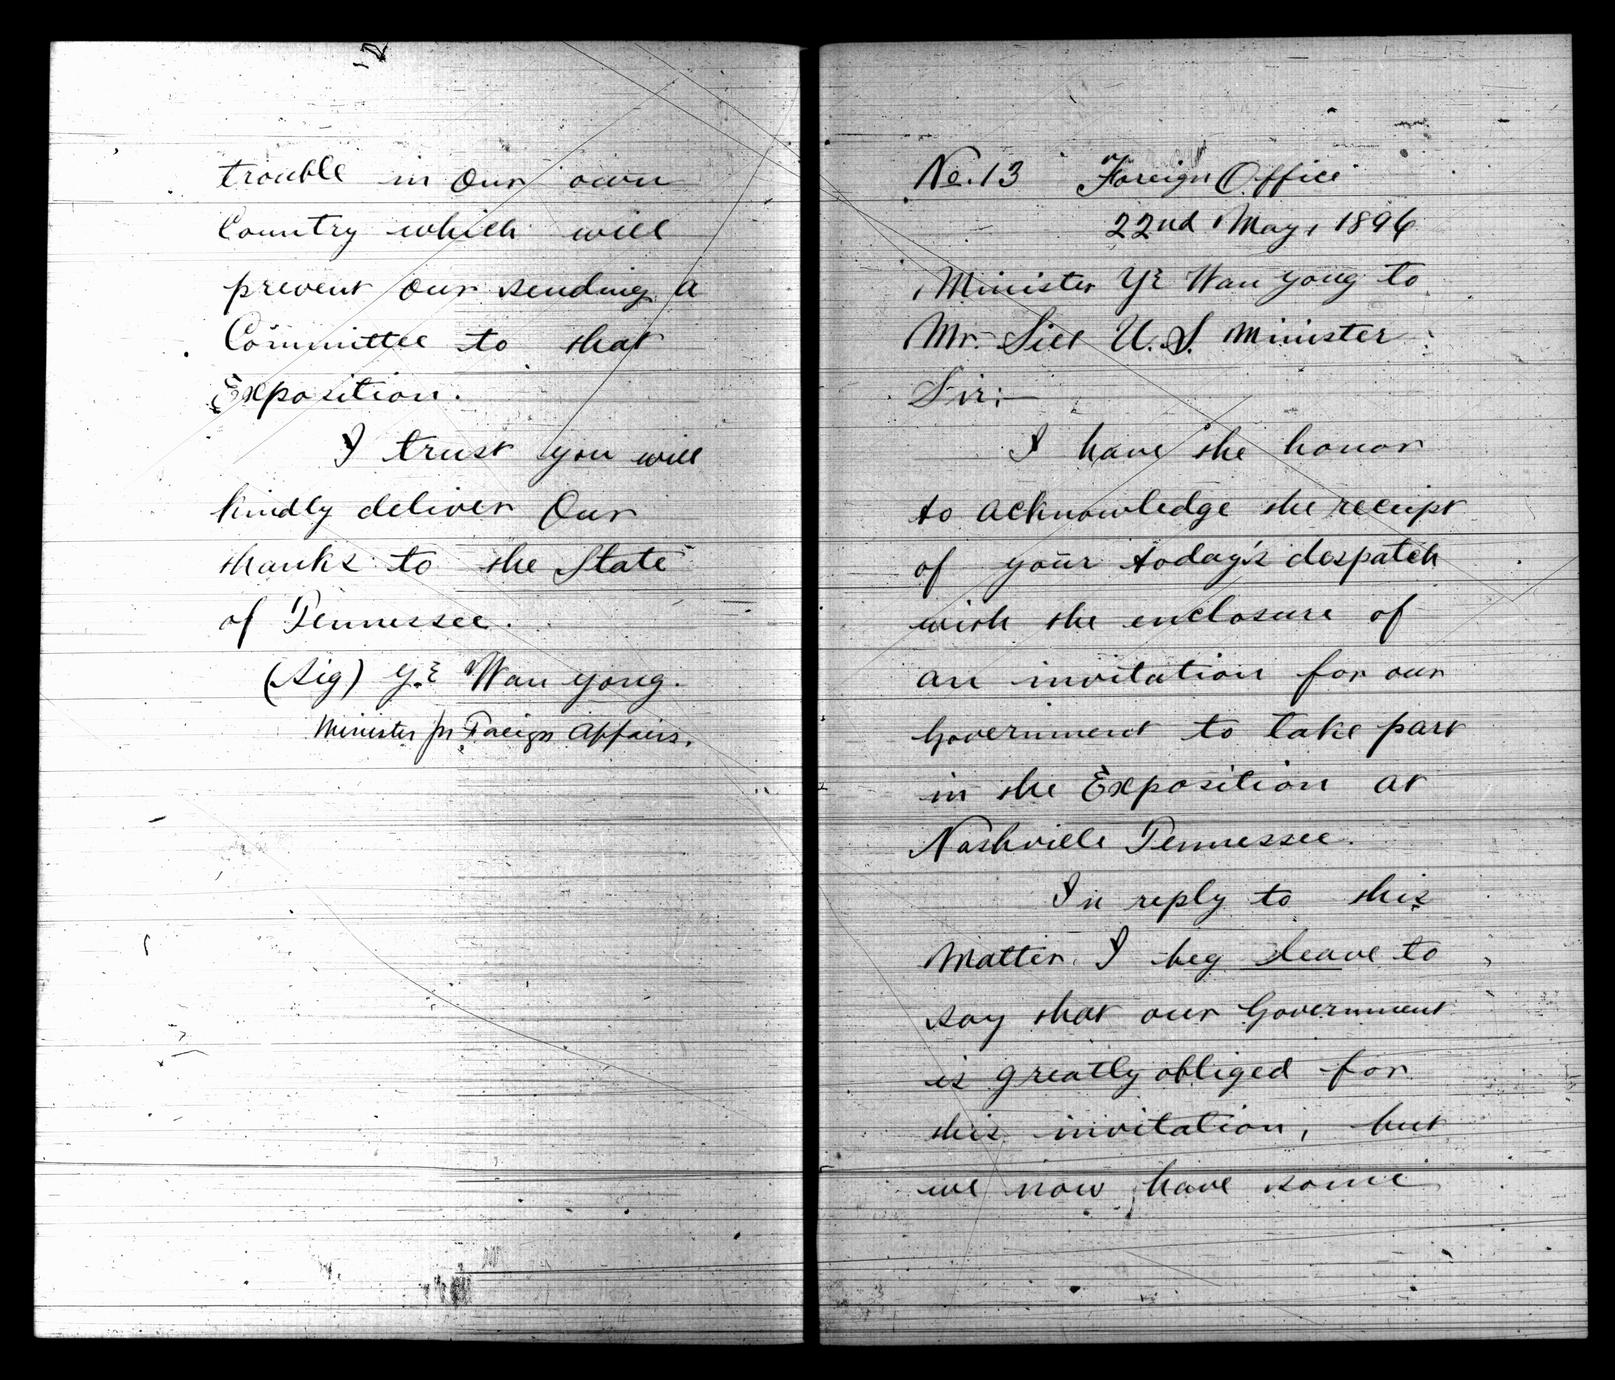 trouble in our own
Country which will
prevent our sending a
Committee to that
Exposition.
I trust you will
kindly deliver Our
thanks to the State
of Tennessee.
(Sig) Ye Wan yong.
Minister for Foreign Affairs.
No. 13 Foreign Office
22nd May, 1896
Minister Ye Wan yong to
Mr. Sill U.S. Minister
Sir:—
I have the honor
to acknowledge the receipt
of your today's despatch
with the enclosure of
an invitation for our
Government to take part
in the Exposition at
Nashville Tennessee.
In reply to this
Matter I beg leave to
say that our Government
is greatly obliged for
this invitation, but
we now have some